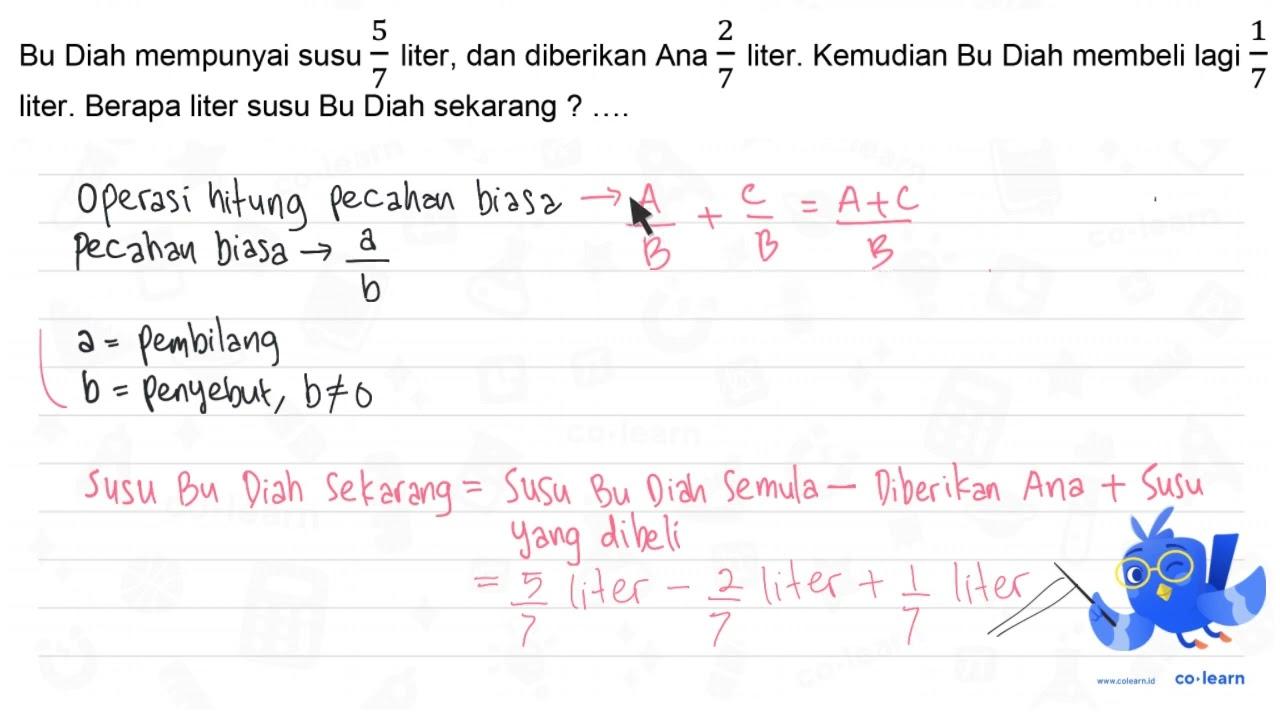 Bu Diah mempunyai susu 5/7 liter, dan diberikan Ana 2/7 liter. Kemudian Bu Diah membeli lagi 1/7
liter. Berapa liter susu Bu Diah sekarang ? ....
Operasi hitung pecahan biasa → A/B + C/B = A+C/B
Pecahan biasa → a/b
a = pembilang
b = penyebut, b≠0
Susu Bu Diah Sekarang = Susu Bu Diah Semula - Diberikan Ana + Susu
yang dibeli
= 5/7 liter - 2/7 liter + 1/7 liter
www.colearn.id co·learn